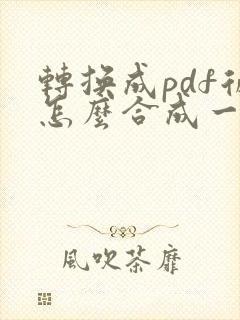 轉換成pdf後
怎麼合成一
風吹荼靡